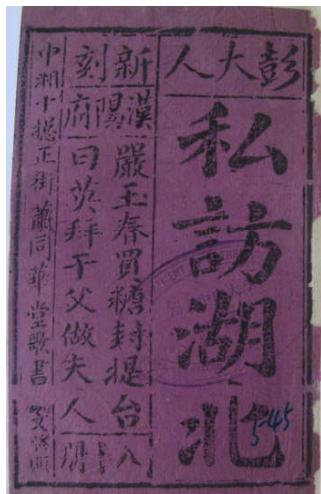 彭大人
私訪湖北
新刻
漢陽府
嚴玉春買糖封提台
曰英拜干父做夫人
八冊
中湘十總正街 蕭同華堂歌書
545